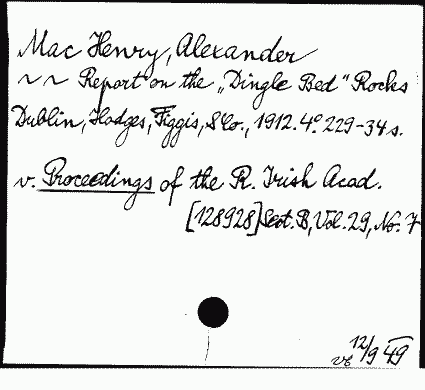 Mac Henry, Alexander
~ ~ Report on the „Dingle Bed" Rocks
Dublin, Hodges, Figgis, & Co., 1912. 4° 229-34 s.
v. Proceedings of the R. Irish Acad.
[128928] Sect. B, Vol. 29, No. 7
12/9 49